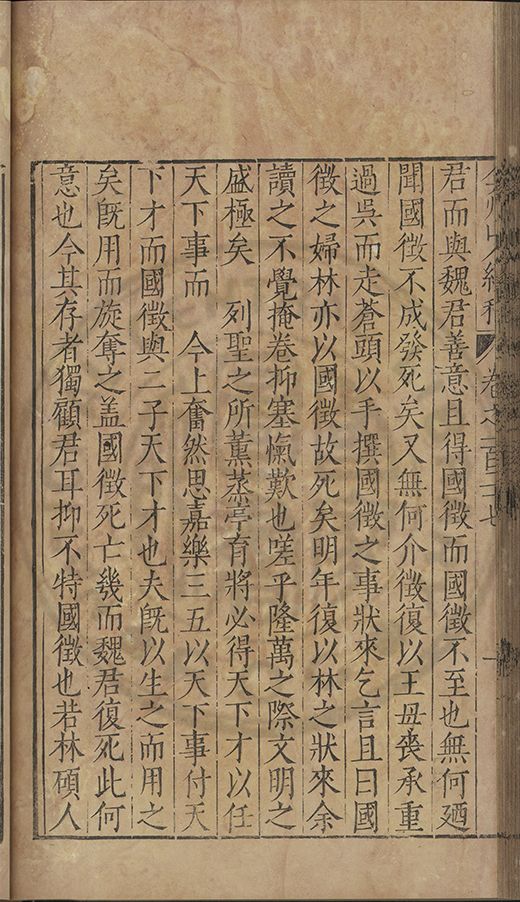 卷之一百二十七
君而與魏君善意且得國徵而國徵不至也無何廼
聞國徵不成發死矣又無何介徵復以王毋喪承重
過吳而走蒼頭以手撰國徵之事狀來乞言且曰國
徵之婦林亦以國徵故死矣明年復以林之狀來余
讀之不覺掩卷抑塞愾歎也嗟乎隆萬之際文明之
盛極矣　列聖之所薰蒸亭育將必得天下才以任
天下事而　今上奮然思嘉樂三五以天下事付天
下才而國徵與二子天下才也夫既以生之而用之
矣既用而旋奪之盖國徵死亡幾而魏君復死此何
意也今其存者獨顧君耳抑不特國徵也若林碩人